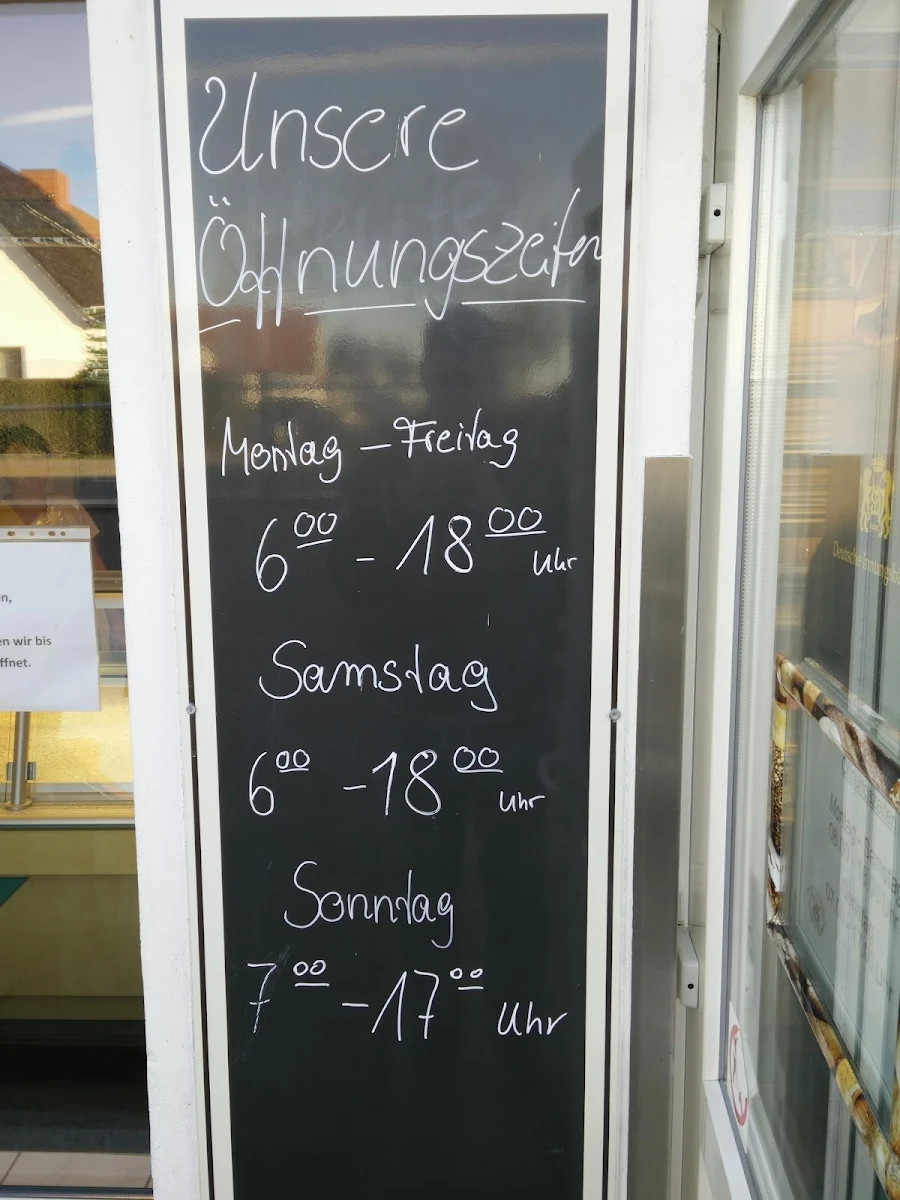 Unsere
Öffnungszeiten
Montag – Freitag
6⁰⁰ – 18⁰⁰ Uhr
Samstag
6⁰⁰ – 18⁰⁰ Uhr
Sonntag
7⁰⁰ – 17⁰⁰ Uhr
en wir bis
ffnet.
Deutsche